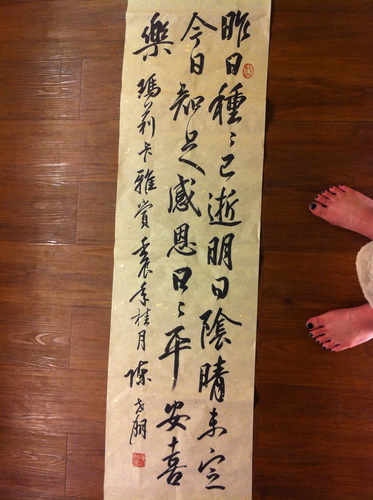 昨日種〻已逝明日陰晴未定
今日知足感恩日〻平安喜
樂 瑪莉卡雅賞 壬辰年桂月 陳